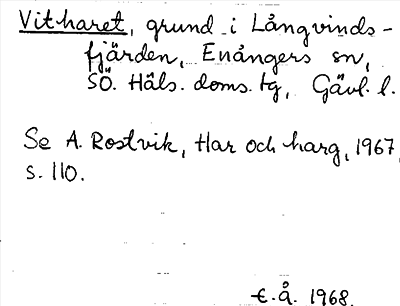 Vitharet, grund i Långvinds-
fjärden, Enångers sn,
SÖ. Häls. doms. tg, Gävl. l.
Se A. Rostvik, Har och harg, 1967,
s. 110.
E.Å. 1968.